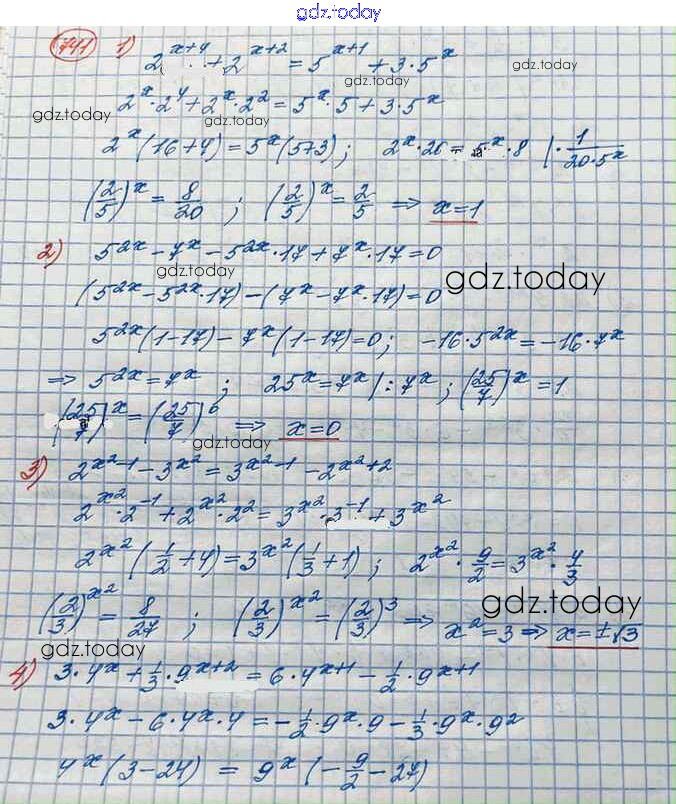 gdz.today
741 1) 2^{x+4} + 2^{x+2} = 5^{x+1} + 3·5^x
gdz.today gdz.today
2^x·2^4 + 2^x·2^2 = 5^x·5 + 3·5^x
gdz.today gdz.today
2^x(16+4) = 5^x(5+3); 2^x·20 = 5^x·8 |·1/(20·5^x)
(2/5)^x = 8/20 ; (2/5)^x = 2/5 => x=1
2) 5^{2x} - 7^x - 5^{2x}·17 + 7^x·17 = 0
gdz.today gdz.today
(5^{2x} - 5^{2x}·17) - (7^x - 7^x·17) = 0
5^{2x}(1-17) - 7^x(1-17) = 0; -16·5^{2x} = -16·7^x
=> 5^{2x} = 7^x ; 25^x = 7^x |: 7^x ; (25/7)^x = 1
(25/7)^x = (25/7)^0 => x=0
gdz.today
3) 2^{x^2-1} - 3^{x^2} = 3^{x^2-1} - 2^{x^2+2}
2^{x^2}·2^{-1} + 2^{x^2}·2^2 = 3^{x^2}·3^{-1} + 3^{x^2}
2^{x^2}(1/2+4) = 3^{x^2}(1/3+1); 2^{x^2}·9/2 = 3^{x^2}·4/3
gdz.today
(2/3)^{x^2} = 8/27 ; (2/3)^{x^2} = (2/3)^3 => x^2 = 3 => x = ±√3
gdz.today
4) 3·4^x + 1/3·9^{x+2} = 6·4^{x+1} - 1/2·9^{x+1}
3·4^x - 6·4^x·4 = -1/2·9^x·9 - 1/3·9^x·9^2
4^x(3-24) = 9^x(-9/2-27)